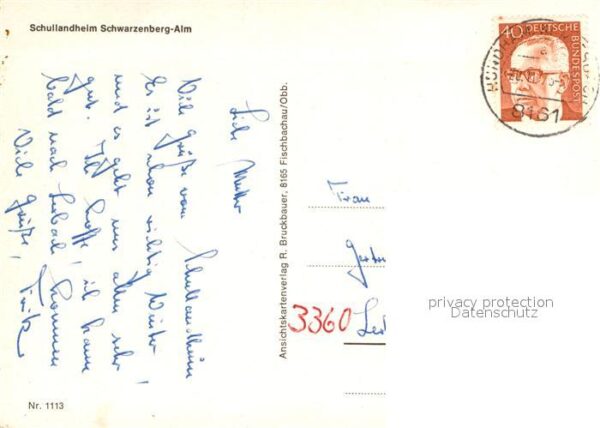 Schullandheim Schwarzenberg-Alm
Liebe Mutter
Viele Grüße vom Schullandheim
Es ist schon richtig Winter
und es geht uns allen sehr
gut. Ich hoffe, ich kann
bald nach Lerbach kommen
Viele Grüße,
Fritz
Nr. 1113
Ansichtskartenverlag R. Bruckbauer, 8165 Fischbachau/Obb.
40 DEUTSCHE BUNDESPOST
8161
Frau
3360
privacy protection
Datenschutz